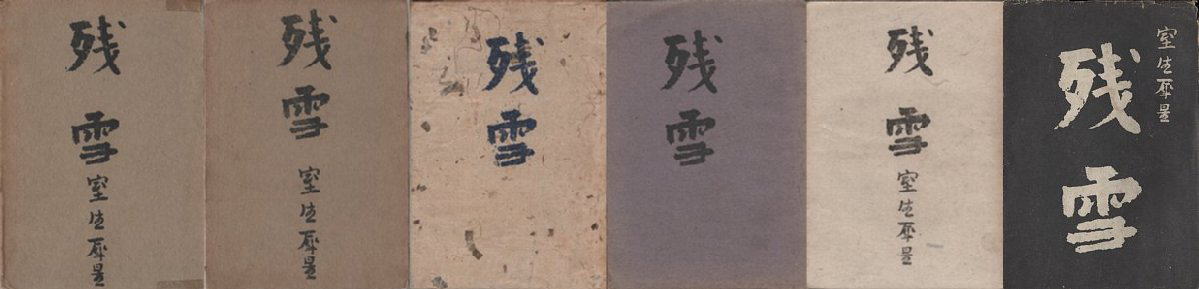 残雪
室生犀星
残雪
室生犀星
残雪
残雪
残雪
室生犀星
室生犀星
残雪